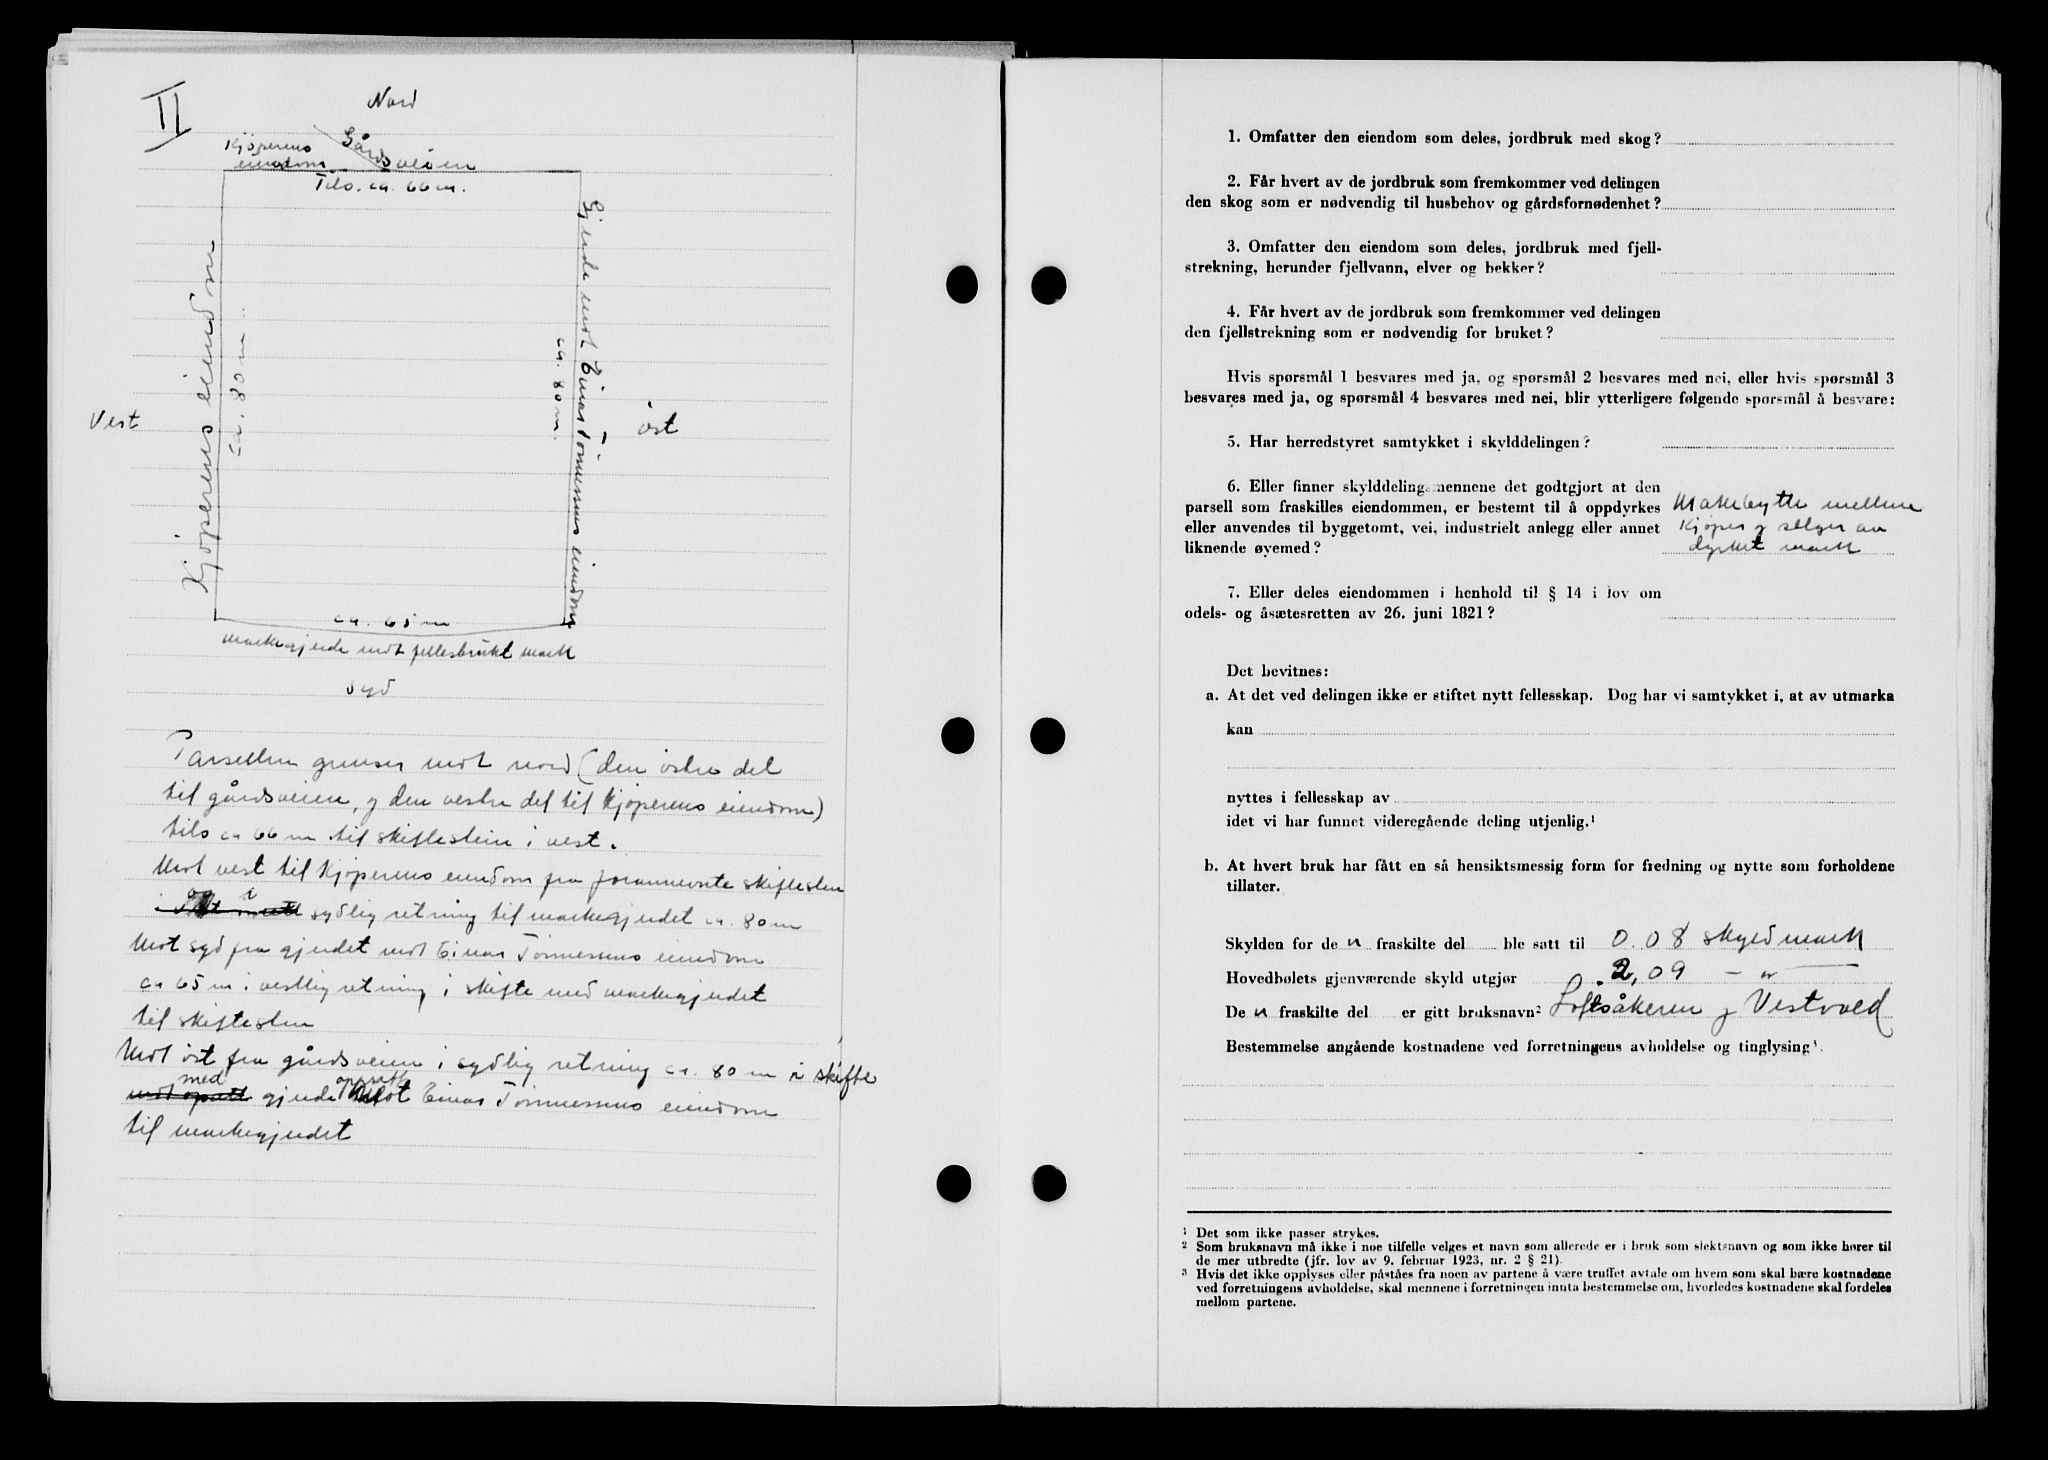 II
Nord
Kjøperens
eiendom
Gårdsveien
Tils. ca. 66 m.
Kjøperens eiendom
ca. 80 m.
Gjerde mot Einar Tönnessens eiendom
ca. 80 m.
Vest
öst
ca. 65 m
markegjerde mot fellesbrukt mark
Syd
Parsellen grenser mot nord (den östre del
til gårdsveien, og den vestre del til Kjøperens eiendom)
tils ca 66 m til skiftestein i vest.
Mot vest til Kjøperens eiendom fra forannevnte skiftesten
og i sydlig retning til markegjerdet ca. 80 m
Mot syd fra gjerdet mot Einar Tönnessens eiendom
ca 65 m i vestlig retning i skifte med markegjerdet
til skiftesten
Mot öst fra gårdsveien i sydlig retning ca. 80 m i skifte
med gjerde oppsatt mot Einar Tönnessens eiendom
til markegjerdet
1. Omfatter den eiendom som deles, jordbruk med skog?
2. Får hvert av de jordbruk som fremkommer ved delingen
den skog som er nødvendig til husbehov og gårdsfornødenhet?
3. Omfatter den eiendom som deles, jordbruk med fjell-
strekning, herunder fjellvann, elver og bekker?
4. Får hvert av de jordbruk som fremkommer ved delingen
den fjellstrekning som er nødvendig for bruket?
Hvis spørsmål 1 besvares med ja, og spørsmål 2 besvares med nei, eller hvis spørsmål 3
besvares med ja, og spørsmål 4 besvares med nei, blir ytterligere følgende spørsmål å besvare:
5. Har herredstyret samtykket i skylddelingen?
6. Eller finner skylddelingsmennene det godtgjort at den
parsell som fraskilles eiendommen, er bestemt til å oppdyrkes
eller anvendes til byggetomt, vei, industrielt anlegg eller annet
liknende øyemed?
Makebytte mellem
Kjøper og selger av
dyrket mark
7. Eller deles eiendommen i henhold til § 14 i lov om
odels- og åsætesretten av 26. juni 1821?
Det bevitnes:
a. At det ved delingen ikke er stiftet nytt fellesskap. Dog har vi samtykket i, at av utmarka
kan
nyttes i fellesskap av
idet vi har funnet videregående deling utjenlig.¹
b. At hvert bruk har fått en så hensiktsmessig form for fredning og nytte som forholdene
tillater.
Skylden for de n fraskilte del ble satt til 0.08 skyldmark
Hovedbølets gjenværende skyld utgjør 2,09 — " —
De n fraskilte del er gitt bruksnavn² Loftsåkeren og Vestvold
Bestemmelse angående kostnadene ved forretningens avholdelse og tinglysing³.
¹ Det som ikke passer strykes.
² Som bruksnavn må ikke i noe tilfelle velges et navn som allerede er i bruk som slektsnavn og som ikke hører til
de mer utbredte (jfr. lov av 9. februar 1923, nr. 2 § 21).
³ Hvis det ikke opplyses eller påståes fra noen av partene å være truffet avtale om hvem som skal bære kostnadene
ved forretningens avholdelse, skal mennene i forretningen innta bestemmelse om, hvorledes kostnadene skal fordeles
mellom partene.